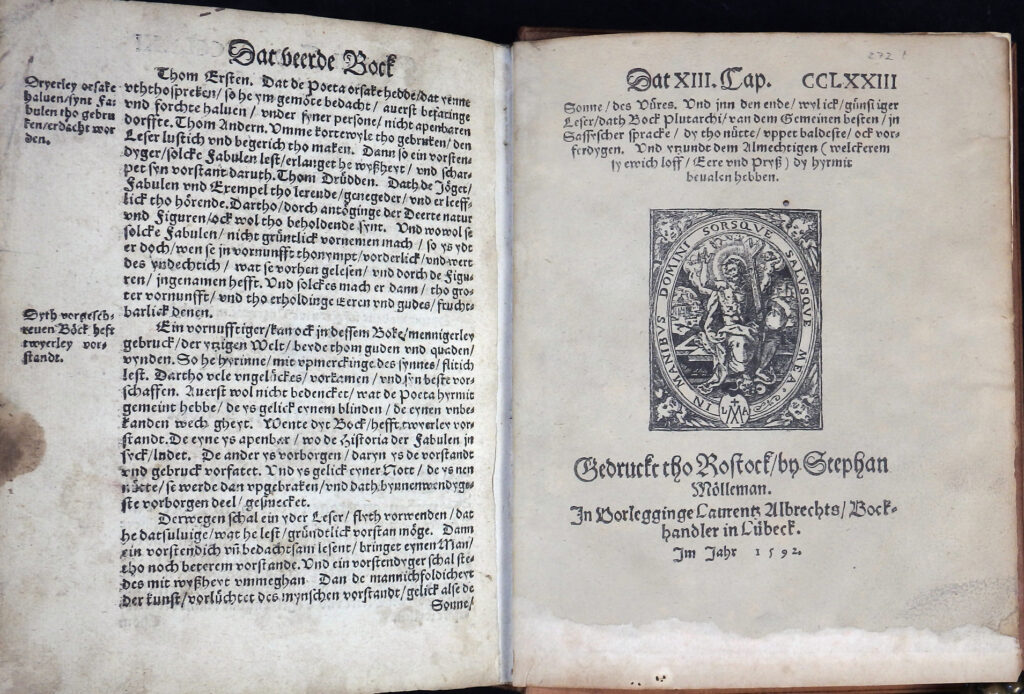 Dat veerde Bock
Dryerley orsake
haluen/synt Fa-
bulen tho gebru
ken/erdacht wor
den.
Thom Ersten. Dat de Poeta orsake hedde/dat yenne
vththospreken/so he ym gemöte bedacht/auerst befaringe
vnd forchte haluen/vnder syner persone/nicht apenbaren
dorffte. Thom Andern. Vmme kortewyle tho gebruken/den
Leser lustich vnd begerich tho maken. Dann so ein vorsten-
dyger/solcke Fabulen lest/erlanget he wyßheyt/vnd schar-
pet syn vorstant daruth. Thom Drüdden. Dath de Jöget/
Fabulen vnd Exempel tho lerende/genegeder/vnd er leeff-
lick tho hörende. Dartho/dorch antöginge der Deerte natur
vnd Figuren/ock wol tho beholdende synt. Vnd wowol se
solcke Fabulen/nicht grüntlick vornemen mach/so ys ydt
er doch/wen se jn vornunfft thonympt/vorderlick/vnd wert
des yndechtich/wat se vorhen gelesen/vnd dorch de Figu-
ren/jngenamen hefft. Vnd solckes mach er dann/tho gro-
ter vornunfft/vnd tho erholdinge Eeren vnd gudes/frucht-
barlick denen.
Dyth vorgesch-
reuen Böck heft
twyerley vor-
standt.
Ein vornufftiger/kan ock jn dessem Boke/mennigerley
gebruck/der ytzigen Welt/beyde thom guden vnd quaden/
vynden. So he hyrinne/mit vpmerckinge des synnes/flitich
lest. Dartho vele vngelückes/vorkamen/vnd syn beste vor-
schaffen. Auerst wol nicht bedencket/wat de Poeta hyrmit
gemeint hebbe/de ys gelick eynem blinden/de eynen vnbe-
kanden wech gheyt. Wente dyt Bock/hefft twyerley vor-
standt. De eyne ys apenbar/wo de Historia der Fabulen jn
syck/ludet. De ander ys vorborgen/daryn ys de vorstandt
vnd gebruck vorfatet. Vnd ys gelick eyner Nott/de ys nen
nütte/se werde dan vpgebraken/vnd dath bynnenwendyge-
ste vorborgen deel/gesmecket.
Derwegen schal ein yder Leser/flyth vorwenden/dat
he datsuluige/wat he lest/gründtlick vorstan möge. Dann
ein vorstendich vñ bedachtsam lesent/bringet eynen Man/
tho noch beterem vorstande. Vnd ein vorstendyger schal ste-
des mit wyßheyt vmmeghan Dan de mannichfoldicheyt
der kunst/vorlüchtet des mynschen vorstandt/gelick alse de
Sonne/
272
Dat XIII. Cap. CCLXXIII
Sonne/des Vüres. Vnd jnn den ende/wylick/günstiger
Leser/dath Bock Plutarchi/van dem Gemeinen besten/jn
Sassyscher spracke/dy tho nütte/vppet baldeste/ock vor-
ferdygen. Vnd ytzundt dem Almechtigen (welckerem
sy ewich loff/Eere vnd Pryß) dy hyrmit
beualen hebben.
IN MANIBVS DOMINI SORSQVE SALVSQVE MEA
LMA
Gedruckt tho Rostock/by Stephan
Mölleman.
In Vorlegginge Laurentz Albrechts/Bock-
handler in Lübeck.
Im Jahr 1592.